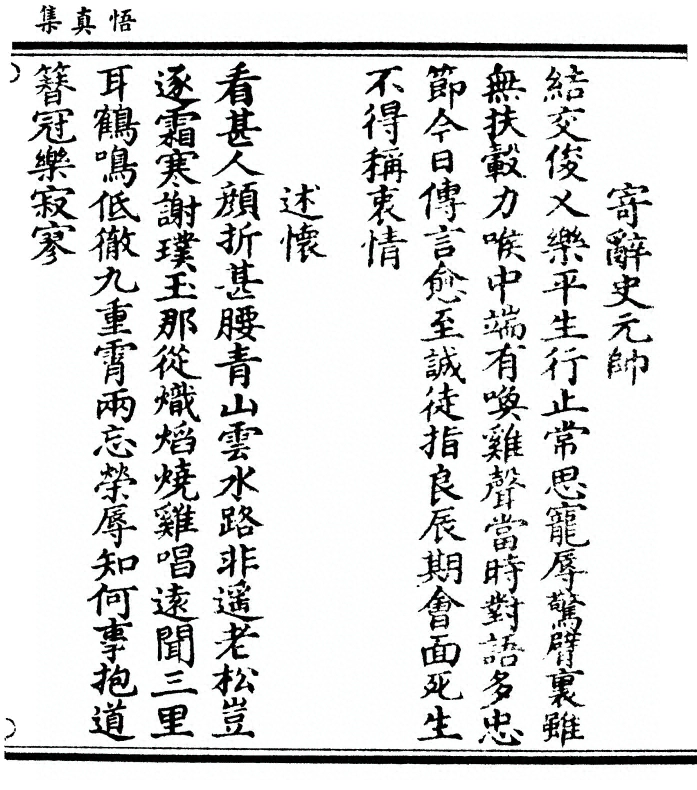 悟真集
寄辭史元帥
結交俊乂樂平生行止常思寵辱驚臂裏雖
無扶轂力喉中端有喚雞聲當時對語多忠
節今日傳言愈至誠徒指良辰期會面死生
不得稱衷情
述懷
看甚人顔折甚腰青山雲水路非遥老松豈
逐霜寒謝璞玉那從熾焰燒雞唱遠聞三里
耳鶴鳴低徹九重霄兩忘榮辱知何事抱道
簪冠樂寂寥